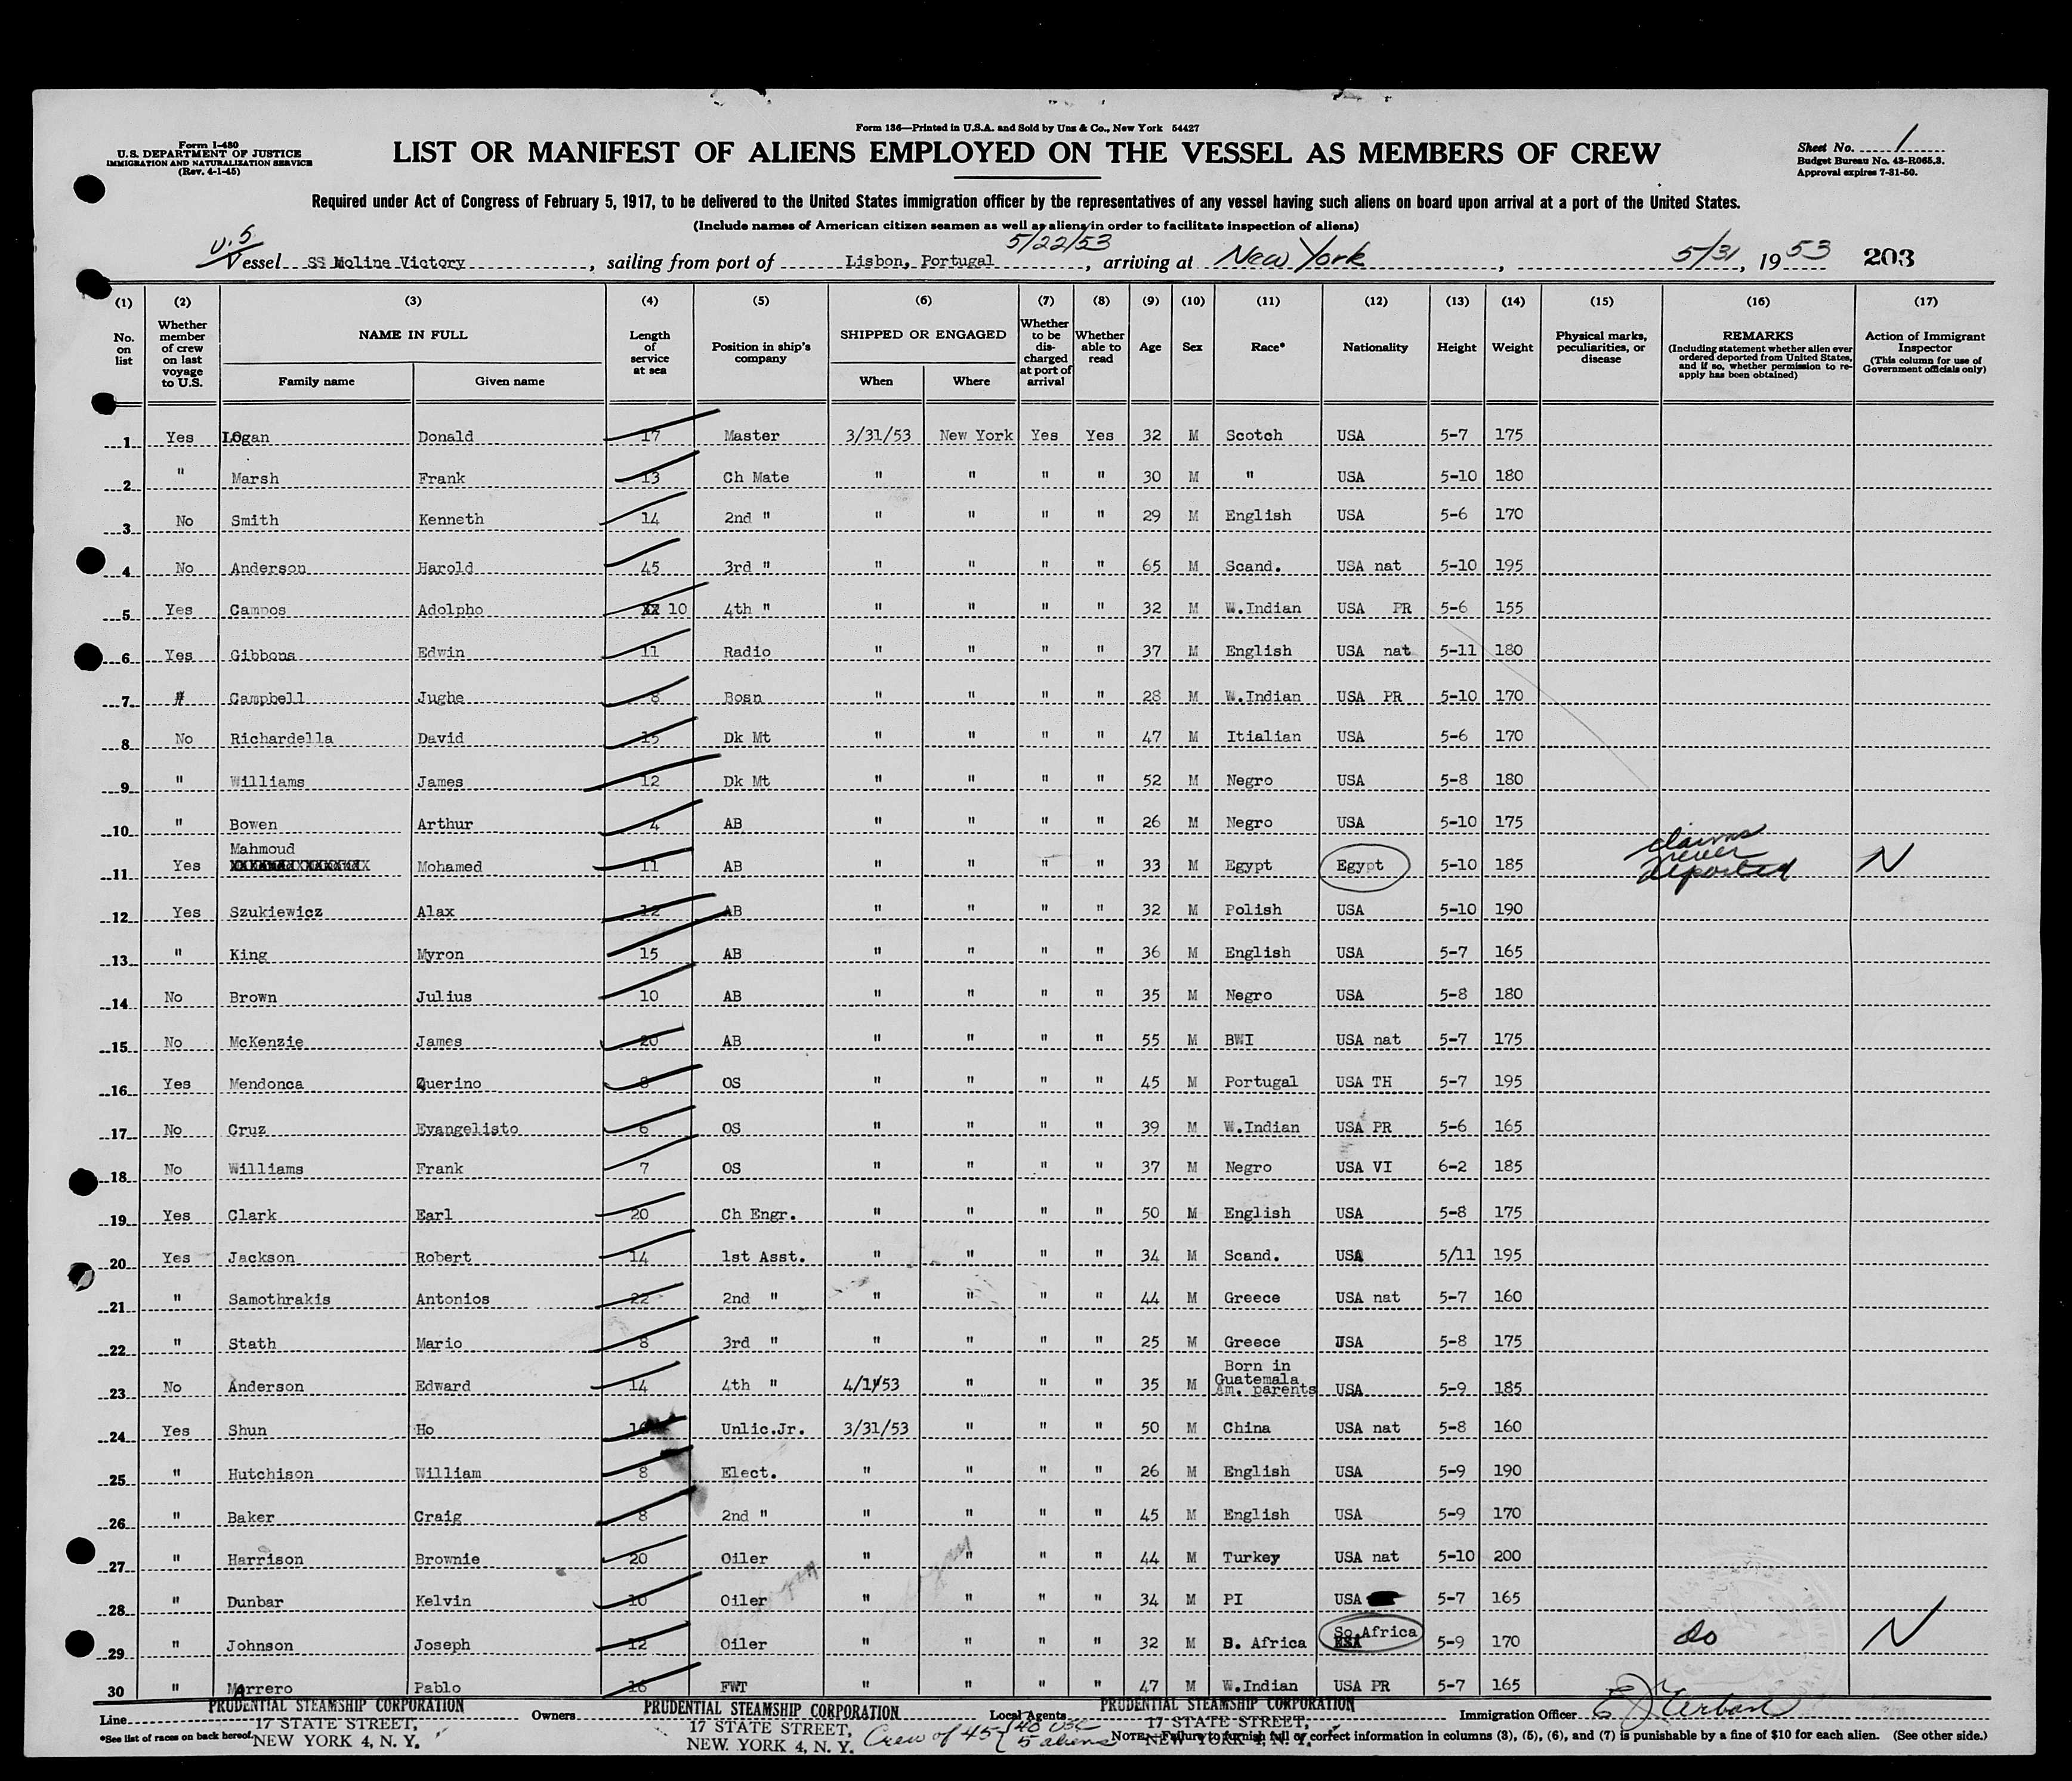 Form 136—Printed in U.S.A. and Sold by Unz & Co., New York 54427
Form I-480
U.S. DEPARTMENT OF JUSTICE
IMMIGRATION AND NATURALIZATION SERVICE
(Rev. 4-1-45)
LIST OR MANIFEST OF ALIENS EMPLOYED ON THE VESSEL AS MEMBERS OF CREW
Sheet No. 1
Budget Bureau No. 43-R065.3.
Approval expires 7-31-50.
Required under Act of Congress of February 5, 1917, to be delivered to the United States immigration officer by the representatives of any vessel having such aliens on board upon arrival at a port of the United States.
(Include names of American citizen seamen as well as aliens in order to facilitate inspection of aliens)
U.S. 5/22/53
Vessel SS Moline Victory, sailing from port of Lisbon, Portugal, arriving at New York, 5/31, 1953 203
(1) (2) (3) (4) (5) (6) (7) (8) (9) (10) (11) (12) (13) (14) (15) (16) (17)
No. on list
Whether member of crew on last voyage to U.S.
NAME IN FULL
Family name Given name
Length of service at sea
Position in ship's company
SHIPPED OR ENGAGED
When Where
Whether to be discharged at port of arrival
Whether able to read
Age
Sex
Race*
Nationality
Height
Weight
Physical marks, peculiarities, or disease
REMARKS
(Including statement whether alien ever ordered deported from United States, and if so, whether permission to re-apply has been obtained)
Action of Immigrant Inspector
(This column for use of Government officials only)
1 Yes LOgan Donald 17 Master 3/31/53 New York Yes Yes 32 M Scotch USA 5-7 175
2 " Marsh Frank 13 Ch Mate " " " " 30 M " USA 5-10 180
3 No Smith Kenneth 14 2nd " " " " " 29 M English USA 5-6 170
4 No Anderson Harold 45 3rd " " " " " 65 M Scand. USA nat 5-10 195
5 Yes Campos Adolpho 10 4th " " " " " 32 M W.Indian USA PR 5-6 155
6 Yes Gibbons Edwin 11 Radio " " " " 37 M English USA nat 5-11 180
7 # Campbell Jughe 8 Bosn " " " " 28 M W.Indian USA PR 5-10 170
8 No Richardella David 15 Dk Mt " " " " 47 M Itialian USA 5-6 170
9 " Williams James 12 Dk Mt " " " " 52 M Negro USA 5-8 180
10 " Bowen Arthur 4 AB " " " " 26 M Negro USA 5-10 175
11 Yes Mahmoud Mohamed 11 AB " " " " 33 M Egypt Egypt 5-10 185 claims never deported N
12 Yes Szukiewicz Alax 12 AB " " " " 32 M Polish USA 5-10 190
13 " King Myron 15 AB " " " " 36 M English USA 5-7 165
14 No Brown Julius 10 AB " " " " 35 M Negro USA 5-8 180
15 No McKenzie James 20 AB " " " " 55 M BWI USA nat 5-7 175
16 Yes Mendonca Querino 8 OS " " " " 45 M Portugal USA TH 5-7 195
17 No Cruz Evangelisto 6 OS " " " " 39 M W.Indian USA PR 5-6 165
18 No Williams Frank 7 OS " " " " 37 M Negro USA VI 6-2 185
19 Yes Clark Earl 20 Ch Engr. " " " " 50 M English USA 5-8 175
20 Yes Jackson Robert 14 1st Asst. " " " " 34 M Scand. USA 5/11 195
21 " Samothrakis Antonios 22 2nd " " " " " 44 M Greece USA nat 5-7 160
22 " Stath Mario 8 3rd " " " " " 25 M Greece USA 5-8 175
23 No Anderson Edward 14 4th " 4/1/53 " " " 35 M Born in Guatemala Am. parents USA 5-9 185
24 Yes Shun Ho Unlic.Jr. 3/31/53 " " " 50 M China USA nat 5-8 160
25 " Hutchison William 8 Elect. " " " " 26 M English USA 5-9 190
26 " Baker Craig 8 2nd " " " " " 45 M English USA 5-9 170
27 " Harrison Brownie 20 Oiler " " " " 44 M Turkey USA nat 5-10 200
28 " Dunbar Kelvin 10 Oiler " " " " 34 M PI USA 5-7 165
29 " Johnson Joseph 12 Oiler " " " " 32 M S. Africa So.Africa 5-9 170 do N
30 " MArrero Pablo 16 FWT " " " " 47 M W.Indian USA PR 5-7 165
Line PRUDENTIAL STEAMSHIP CORPORATION
17 STATE STREET,
NEW YORK 4, N. Y.
Owners PRUDENTIAL STEAMSHIP CORPORATION
17 STATE STREET,
NEW YORK 4, N. Y.
Crew of 45 { 40 USC
5 aliens
Local Agents PRUDENTIAL STEAMSHIP CORPORATION
17 STATE STREET,
NEW YORK 4, N. Y.
Immigration Officer E J Urban
*See list of races on back hereof.
NOTE.—Failure to furnish full or correct information in columns (3), (5), (6), and (7) is punishable by a fine of $10 for each alien. (See other side.)